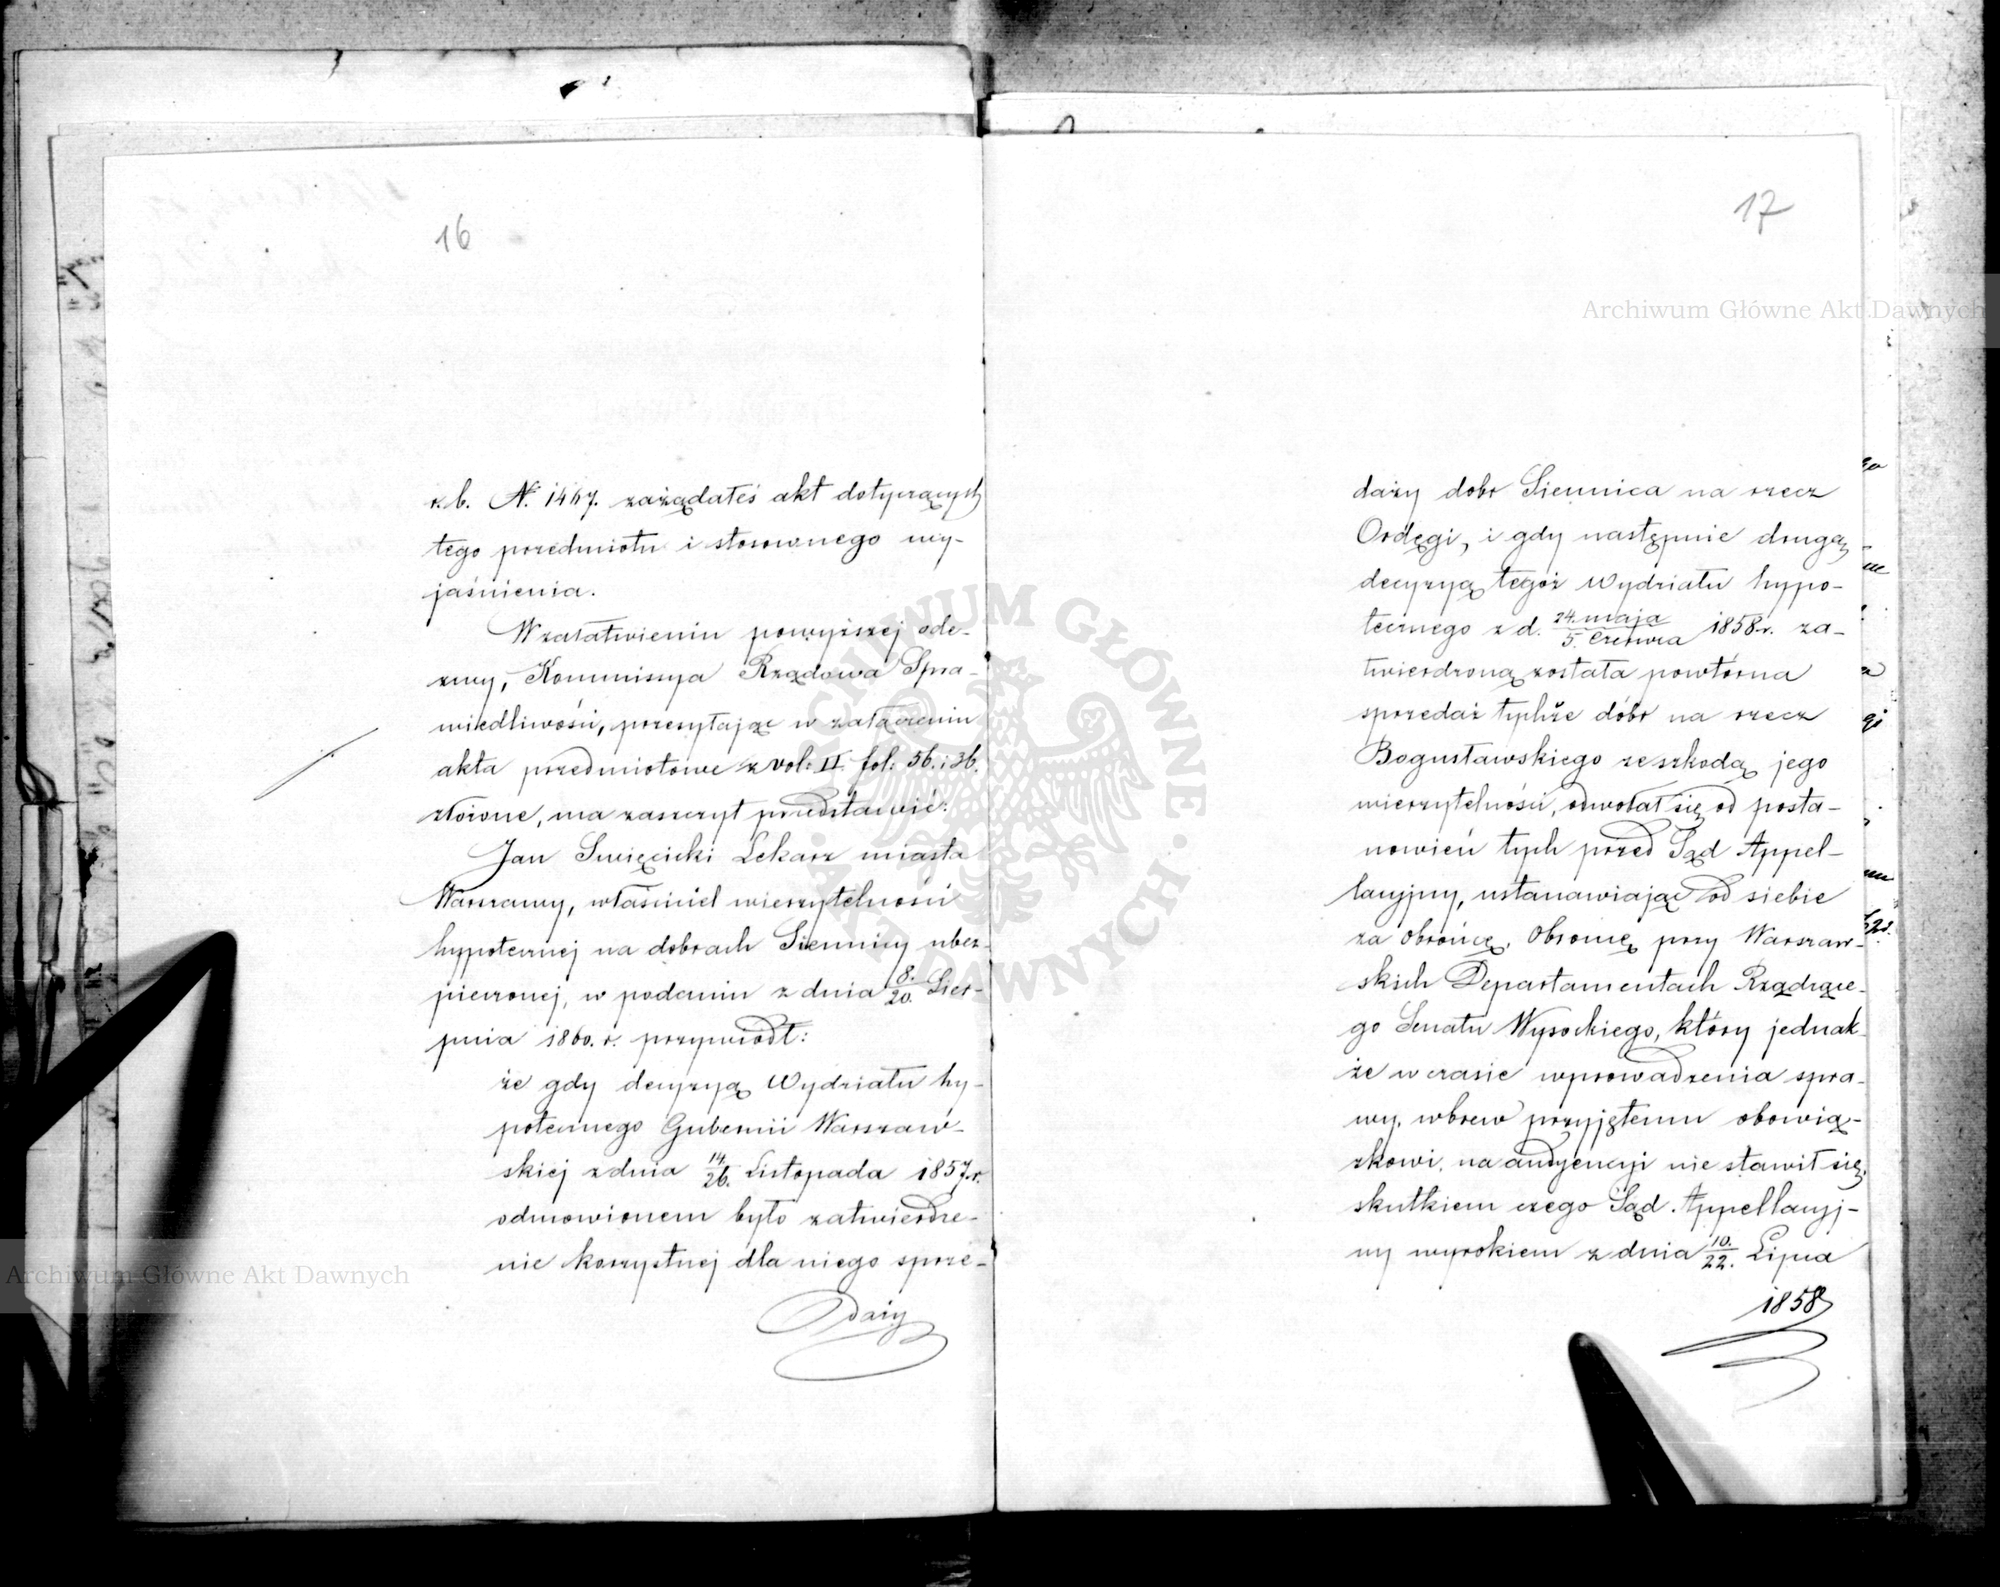 16
r. b. N. 1467. zażądałeś akt dotyczących
tego przedmiotu i stosownego wy-
jaśnienia.
W załatwieniu powyższej ode-
zwy, Kommissya Rządowa Spra-
wiedliwości, przesyłając w załączeniu
akta przedmiotowe z vol: II. fol: 56. i 36.
złożone, ma zaszczyt przedstawić:
Jan Święcicki Lekarz miasta
Warszawy, właściciel wierzytelności
hypotecznej na dobrach Siennicy ubez-
pieczonej, w podaniu z dnia 8./20. Sier-
pnia 1860. r. przywiódł:
że gdy decyzyą Wydziału hy-
potecznego Gubernii Warszaw-
skiej z dnia 14./26. Listopada 1857. r.
odmówionem było zatwierdze-
nie korzystnej dla niego sprze-
daży
17
daży dóbr Siennica na rzecz
Ordęgi, i gdy następnie drugą
decyzyą tegoż Wydziału hypo-
tecznego z d. 24. maja/5. Czerwca 1858. r. za-
twierdzoną została powtórna
sprzedaż tychże dóbr na rzecz
Bogusławskiego ze szkodą jego
wierzytelności, odwołał się od posta-
nowień tych przed Sąd Appel-
lacyjny, ustanawiając od siebie
za obrońcę, Obrońcę przy Warszaw-
skich Departamentach Rządzące-
go Senatu Wysockiego, który jednak-
że w czasie wprowadzenia spra-
wy, wbrew przyjętemu obowią-
zkowi, na audyencyi nie stawił się,
skutkiem czego Sąd Appellacyj-
ny wyrokiem z dnia 10./22. Lipca
1858
Archiwum Główne Akt Dawnych
Archiwum Główne Akt Dawnych
ARCHIWUM GŁÓWNE · AKT DAWNYCH ·